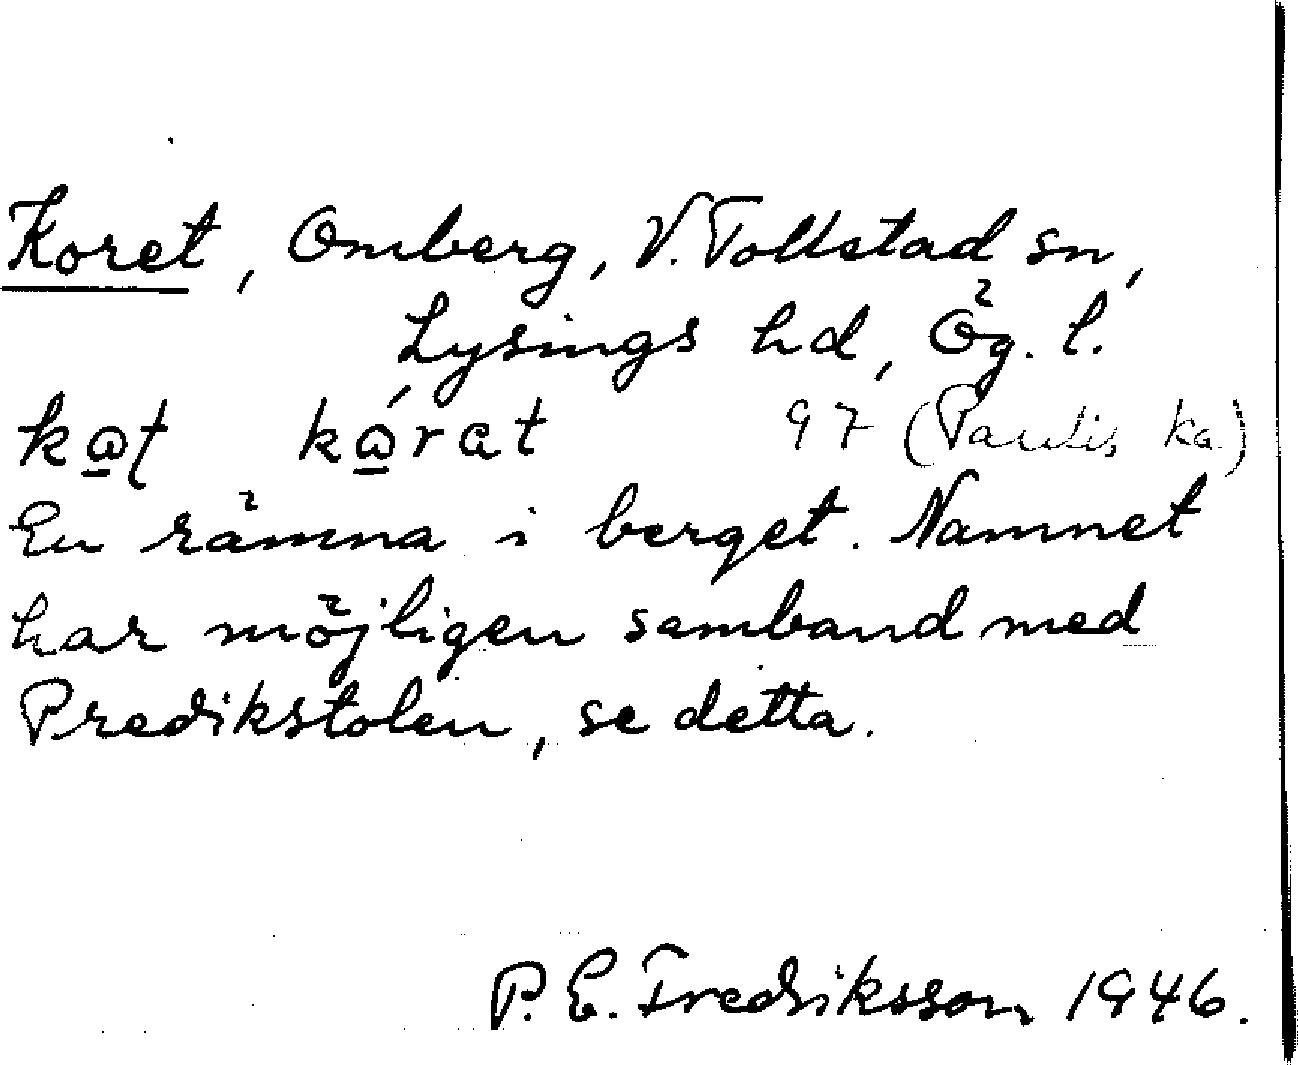 Koret, Omberg, V. Tollstad sn,
Lysings hd, Ög. l.
97 (Paulis ka)
En rämna i berget. Namnet
har möjligen samband med
Predikstolen, se detta.
P. E. Fredriksson 1946.